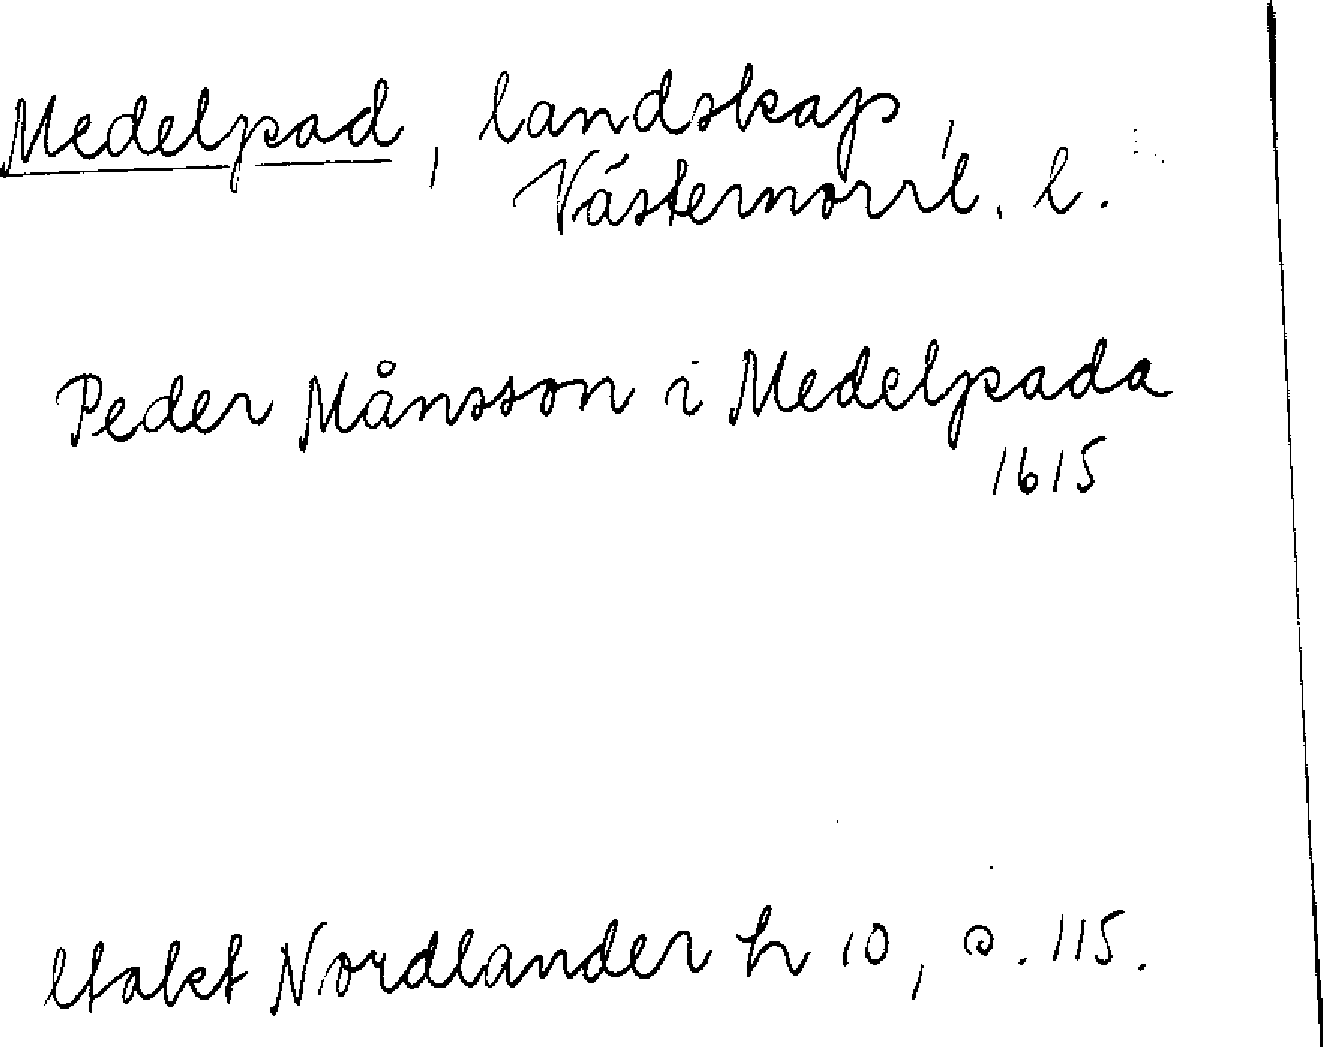 Medelpad, landskap,
Västernorrl. l.
Peder Månsson i Medelpada
1615
Utakt Nordlander h 10, s. 115.